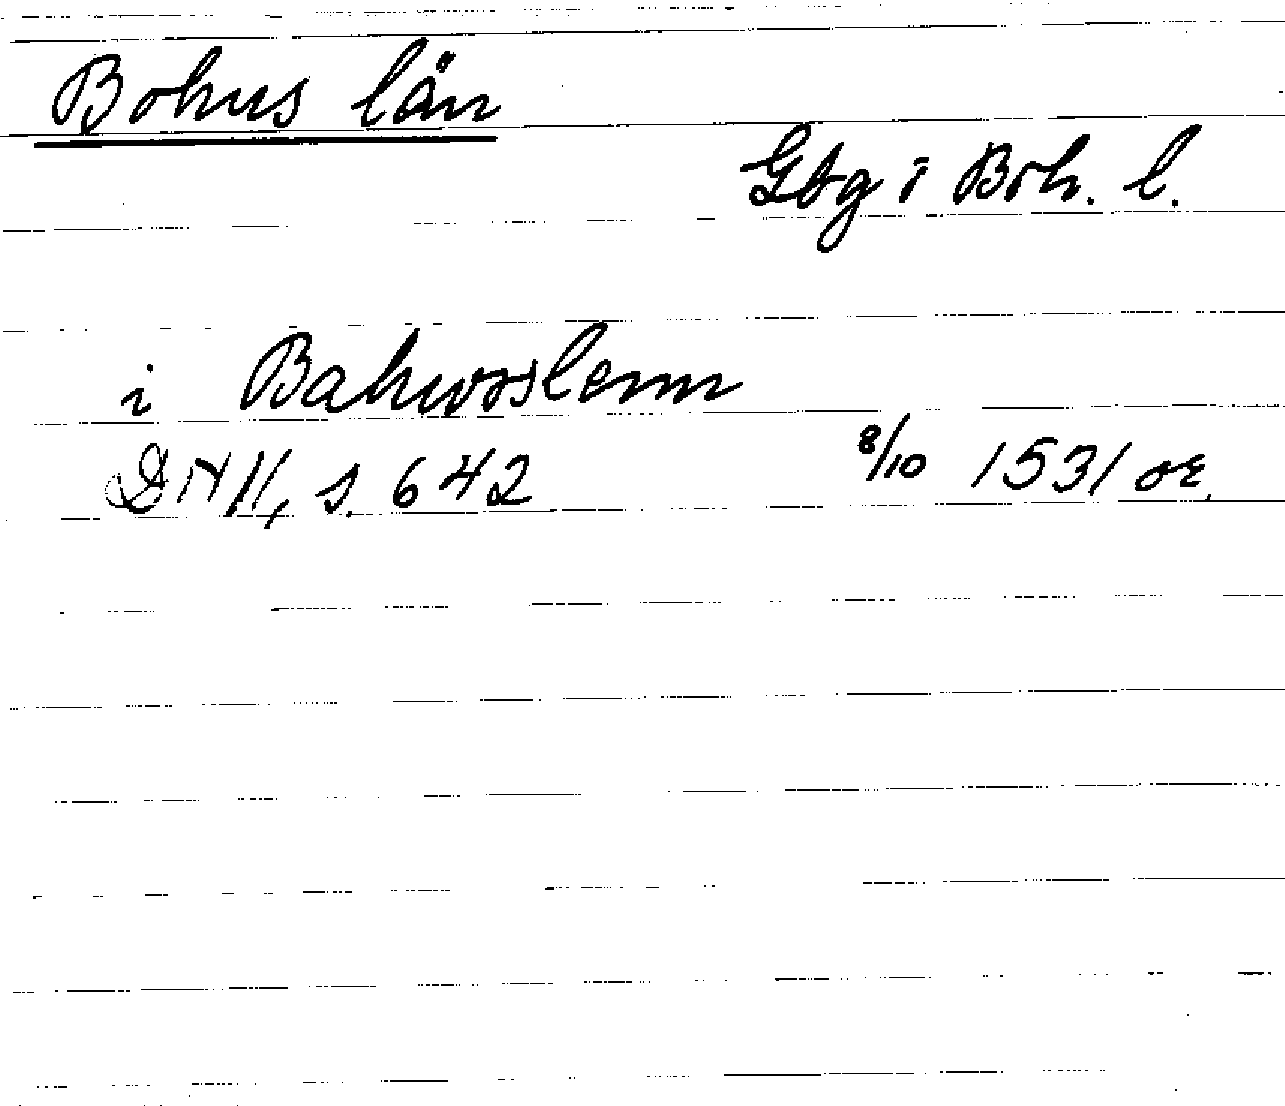 Bohus län
Gbg i Boh. l.
i Bahwsslenn
DN 11, s. 642 8/10 1531 or.